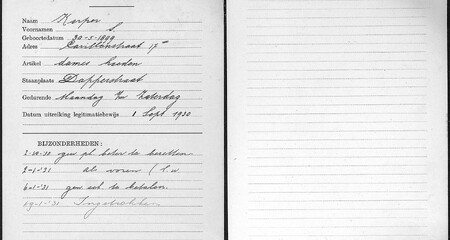 Naam Karper
Voornamen S
Geboortedatum 30-5-1899
Adres Carillonstraat 17
Artikel dames hoeden
Staanplaats Dapperstraat
Gedurende Maandag t/m Zaterdag
Datum uitreiking legitimatiebewijs 1 Sept. 1930
BIJZONDERHEDEN:
2-10-'30 gew. pl. beter te bezetten.
2-1-'31 als voren
6-1-'31 gew. sch. te betalen.
19-1-'31 Ingetrokken